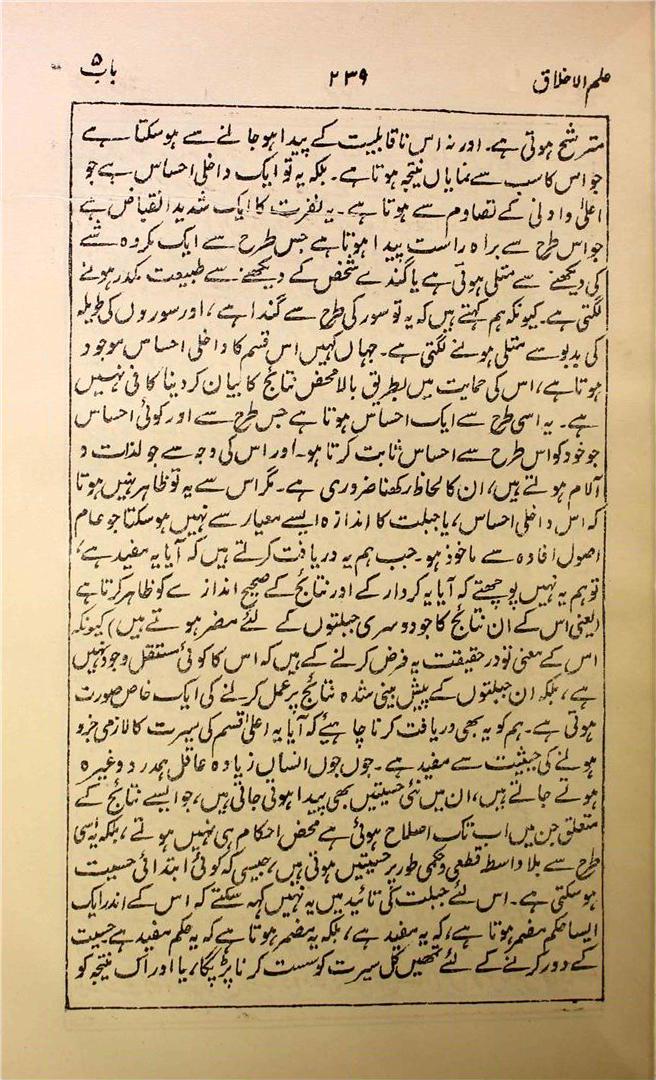 علم الاخلاق ۲۳۹ باب ۵
مترشح ہوتی ہے۔ اور نہ اس ناقابلیت کے پیدا ہو جانے سے ہو سکتا ہے
جو اس کا سب سے نمایاں نتیجہ ہوتا ہے۔ بلکہ یہ تو ایک داخلی احساس ہے جو
اعلیٰ و ادنی کے تصادم سے ہوتا ہے۔ یہ نفرت کا ایک شدید انقباض ہے
جو اس طرح سے براہ راست پیدا ہوتا ہے جس طرح سے ایک مکروہ شے
کی دیکھنے سے متلی ہوتی ہے یا گندے شخص کے دیکھنے سے طبیعت مکدر ہونے
لگتی ہے۔ کیونکہ ہم کہتے ہیں کہ یہ تو سور کی طرح سے گندا ہے، اور سوروں کی طویلہ
کی بدبو سے متلی ہونے لگتی ہے۔ جہاں کہیں اس قسم کا داخلی احساس موجود
ہوتا ہے، اس کی حمایت میں بطریق بالا محض نتائج کا بیان کر دینا کافی نہیں
ہے۔ یہ اسی طرح سے ایک احساس ہوتا ہے جس طرح سے اور کوئی احساس
جو خود کو اس طرح سے احساس ثابت کرتا ہو۔ اور اس کی وجہ سے جو لذات و
آلام ہوتے ہیں، ان کا لحاظ رکھنا ضروری ہے۔ مگر اس سے یہ تو ظاہر نہیں ہوتا
کہ اس داخلی احساس، یا جبلت کا اندازہ ایسے معیار سے نہیں ہو سکتا جو عام
اصول افادہ سے ماخوذ ہو۔ جب ہم یہ دریافت کرتے ہیں کہ آیا یہ مفید ہے،
تو ہم یہ نہیں پوچھتے کہ آیا یہ کردار کے اور نتائج کے صحیح اندازے کو ظاہر کرتا ہے
(یعنی اس کے ان نتائج کا جو دوسری جبلتوں کے لئے مضر ہوتے ہیں) کیونکہ
اس کے معنی تو در حقیقت یہ فرض کرنے کے ہیں کہ اس کا کوئی مستقل وجود نہیں
ہے، بلکہ ان جبلتوں کے پیش بینی شدہ نتائج پر عمل کرنے کی ایک خاص صورت
ہوتی ہے۔ ہم کو یہ بھی دریافت کرنا چاہیئے کہ آیا یہ اعلیٰ قسم کی سیرت کا لازمی جزو
ہونے کی حیثیت سے مفید ہے۔ جوں جوں انسان زیادہ عاقل ہمدرد وغیرہ
ہوتے جاتے ہیں، ان میں نئی حسیتیں بھی پیدا ہوتی جاتی ہیں، جو ایسے نتائج کے
متعلق جن میں اب تک اصلاح ہوئی ہے محض احکام ہی نہیں ہوتے، بلکہ اسی
طرح سے بلا واسطہ قطعی و حکمی طور پر حسیتیں ہوتی ہیں، جیسی کہ کوئی ابتدائی حسیت
ہو سکتی ہے۔ اس لئے جبلت کی تائید میں یہ نہیں کہہ سکتے کہ اس کے اندر ایک
ایسا حکم مضمر ہوتا ہے، کہ یہ مفید ہے، بلکہ یہ مضمر ہوتا ہے کہ یہ حکم مفید ہے حسیت
کے دور کرنے کے لئے تمھیں کل سیرت کو سست کرنا پڑیگا، یا ادراک نتیجہ کو